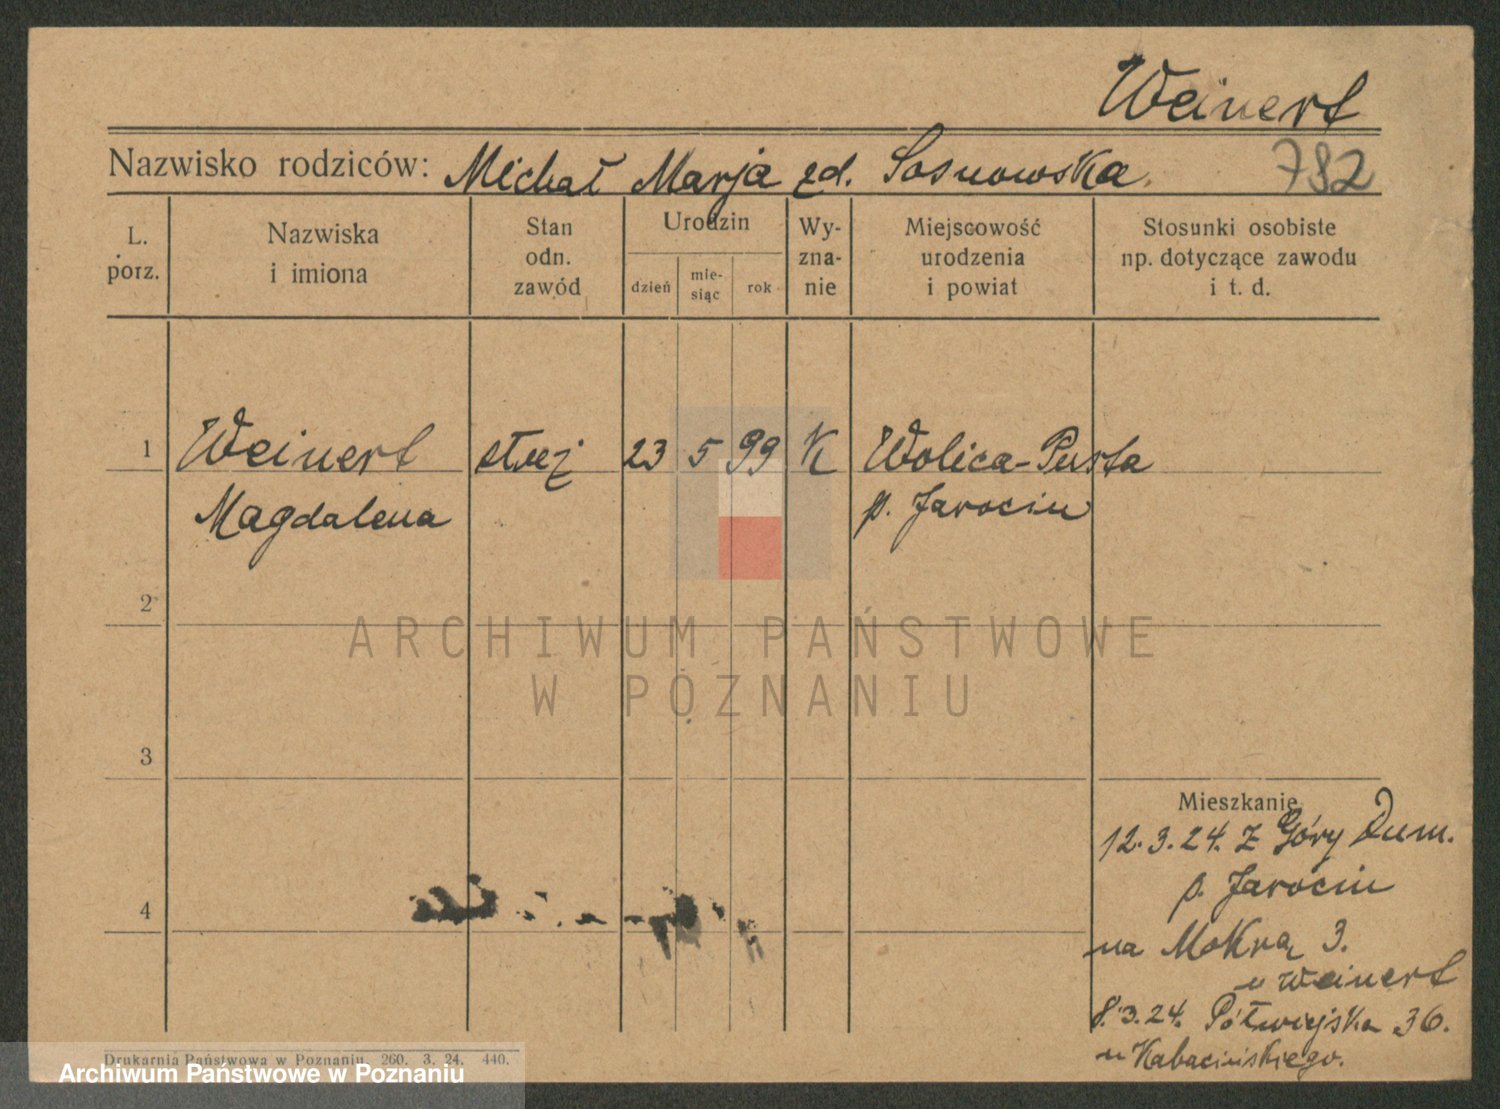 Weinert
Nazwisko rodziców: Michał Marja zd. Sosnowska. 782
L. porz.
Nazwiska i imiona
Stan odn. zawód
Urodzin
dzień
mie- siąc
rok
Wy- zna- nie
Miejscowość urodzenia i powiat
Stosunki osobiste np. dotyczące zawodu i t. d.
1 Weinert 23 5 99 K Wolica-Pusta
Magdalena p. Jarocin
2
3
4
ARCHIWUM PAŃSTWOWE
W POZNANIU
Mieszkanie
12.3.24. Z Góry Dum.
p. Jarocin
na Mokrą 3.
u Weinert
8.3.24. Półwiejska 36.
u Kabacińskiego.
Drukarnia Państwowa w Poznaniu. 260. 3. 24. 440.
Archiwum Państwowe w Poznaniu